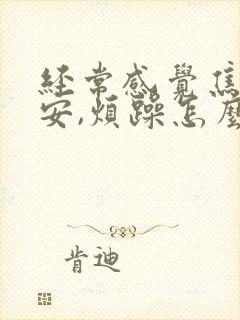 經常感覺焦
安,煩躁怎麼
肯迪